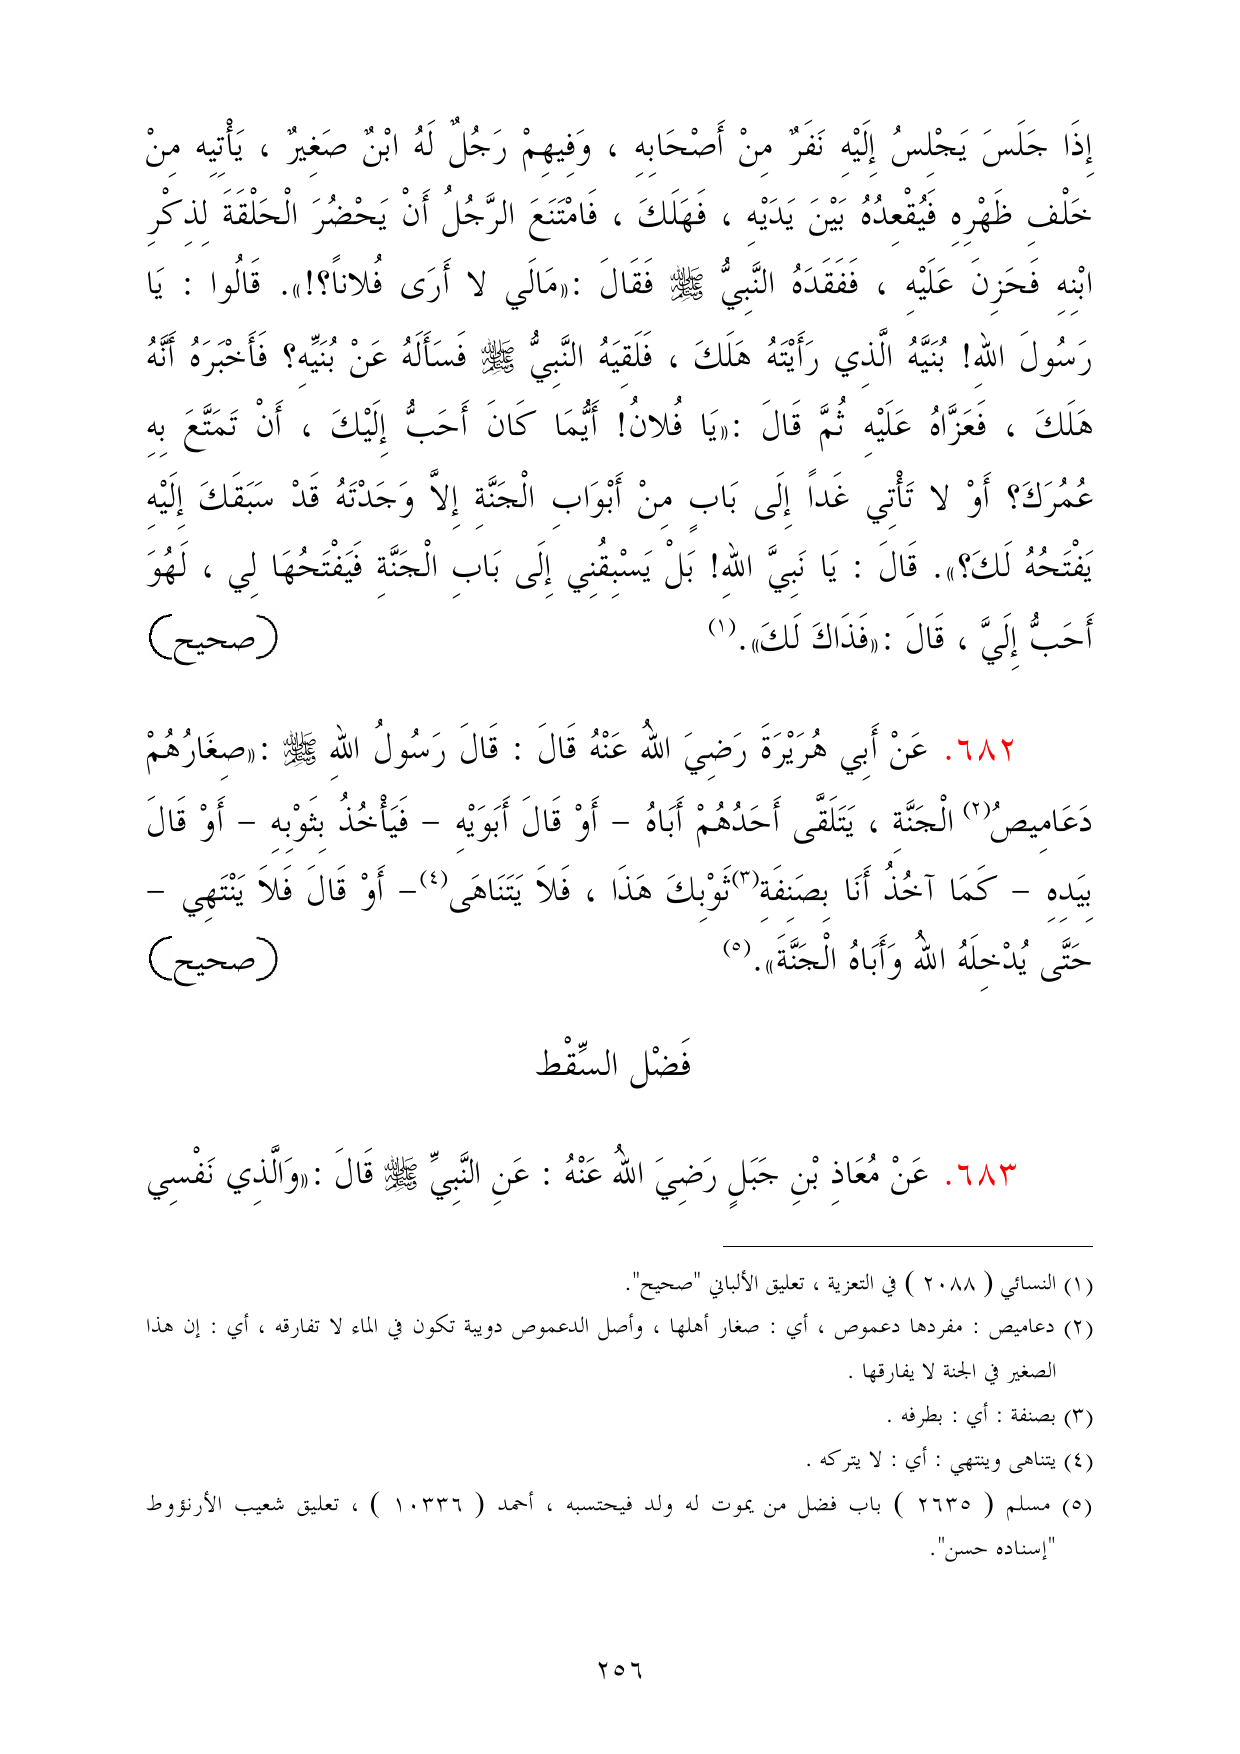 إِذَا جَلَسَ يَجْلِسُ إِلَيْهِ نَفَرٌ مِنْ أَصْحَابِهِ ، وَفِيهِمْ رَجُلٌ لَهُ ابْنٌ صَغِيرٌ ، يَأْتِيهِ مِنْ
خَلْفِ ظَهْرِهِ فَيُقْعِدُهُ بَيْنَ يَدَيْهِ ، فَهَلَكَ ، فَامْتَنَعَ الرَّجُلُ أَنْ يَحْضُرَ الْحَلْقَةَ لِذِكْرِ
ابْنِهِ فَحَزِنَ عَلَيْهِ ، فَفَقَدَهُ النَّبِيُّ ﷺ فَقَالَ :«مَالَي لا أَرَى فُلاناً؟!». قَالُوا : يَا
رَسُولَ اللهِ! بُنَيَّهُ الَّذِي رَأَيْتَهُ هَلَكَ ، فَلَقِيَهُ النَّبِيُّ ﷺ فَسَأَلَهُ عَنْ بُنَيِّهِ؟ فَأَخْبَرَهُ أَنَّهُ
هَلَكَ ، فَعَزَّاهُ عَلَيْهِ ثُمَّ قَالَ :«يَا فُلانُ! أَيُّمَا كَانَ أَحَبُّ إِلَيْكَ ، أَنْ تَمَتَّعَ بِهِ
عُمُرَكَ؟ أَوْ لا تَأْتِي غَداً إِلَى بَابٍ مِنْ أَبْوَابِ الْجَنَّةِ إِلاَّ وَجَدْتَهُ قَدْ سَبَقَكَ إِلَيْهِ
يَفْتَحُهُ لَكَ؟». قَالَ : يَا نَبِيَّ اللهِ! بَلْ يَسْبِقُنِي إِلَى بَابِ الْجَنَّةِ فَيَفْتَحُهَا لِي ، لَهُوَ
أَحَبُّ إِلَيَّ ، قَالَ :«فَذَاكَ لَكَ».(١) (صحيح)
٦٨٢. عَنْ أَبِي هُرَيْرَةَ رَضِيَ اللهُ عَنْهُ قَالَ : قَالَ رَسُولُ اللهِ ﷺ :«صِغَارُهُمْ
دَعَامِيصُ(٢) الْجَنَّةِ ، يَتَلَقَّى أَحَدُهُمْ أَبَاهُ – أَوْ قَالَ أَبَوَيْهِ – فَيَأْخُذُ بِثَوْبِهِ – أَوْ قَالَ
بِيَدِهِ – كَمَا آخُذُ أَنَا بِصَنِفَةِ(٣)ثَوْبِكَ هَذَا ، فَلاَ يَتَنَاهَى(٤)– أَوْ قَالَ فَلاَ يَنْتَهِي –
حَتَّى يُدْخِلَهُ اللهُ وَأَبَاهُ الْجَنَّةَ».(٥) (صحيح)
فَضْل السِّقْط
٦٨٣. عَنْ مُعَاذِ بْنِ جَبَلٍ رَضِيَ اللهُ عَنْهُ : عَنِ النَّبِيِّ ﷺ قَالَ :«وَالَّذِي نَفْسِي
(١) النسائي ( ٢٠٨٨ ) في التعزية ، تعليق الألباني "صحيح".
(٢) دعاميص : مفردها دعموص ، أي : صغار أهلها ، وأصل الدعموص دويبة تكون في الماء لا تفارقه ، أي : إن هذا
الصغير في الجنة لا يفارقها .
(٣) بصنفة : أي : بطرفه .
(٤) يتناهى وينتهي : أي : لا يتركه .
(٥) مسلم ( ٢٦٣٥ ) باب فضل من يموت له ولد فيحتسبه ، أحمد ( ١٠٣٣٦ ) ، تعليق شعيب الأرنؤوط
"إسناده حسن".
٢٥٦